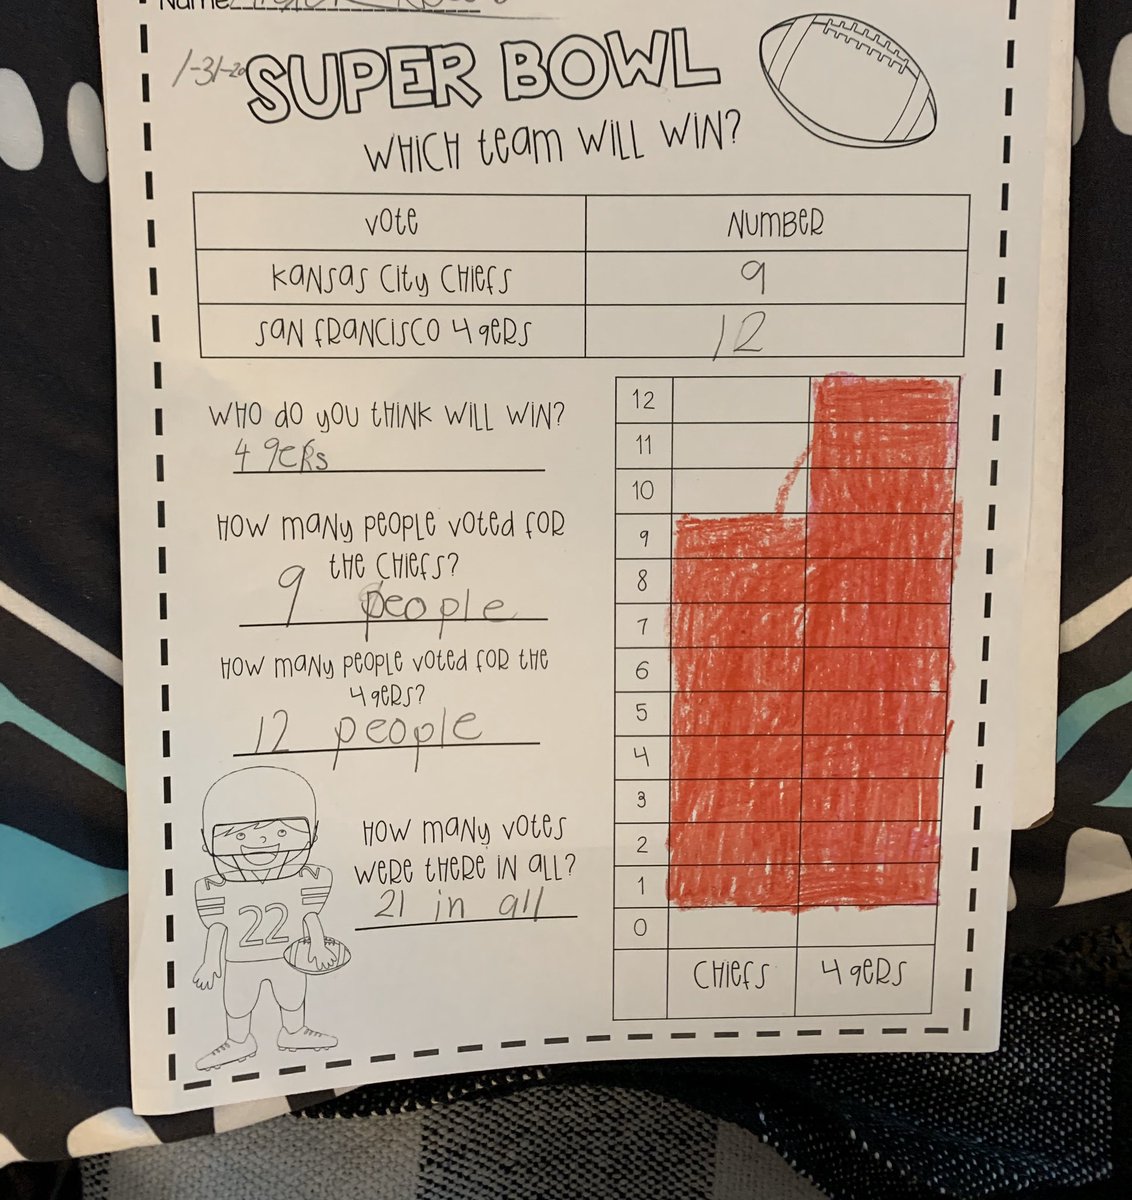 Name
1-31-20
SUPER BOWL
WHICH team WILL WIN?
Vote NUMBER
Kansas City Chiefs 9
San Francisco 49ers 12
WHO do you think will win?
49ers
How many people voted for
the Chiefs?
9 people
How many people voted for the
49ers?
12 people
How many votes
were there in all?
21 in all
22
12
11
10
9
8
7
6
5
4
3
2
1
0
Chiefs 49ers